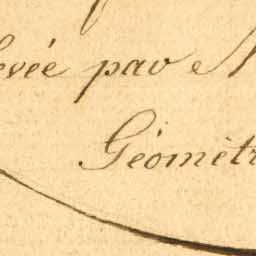 levée par M
Géomètr